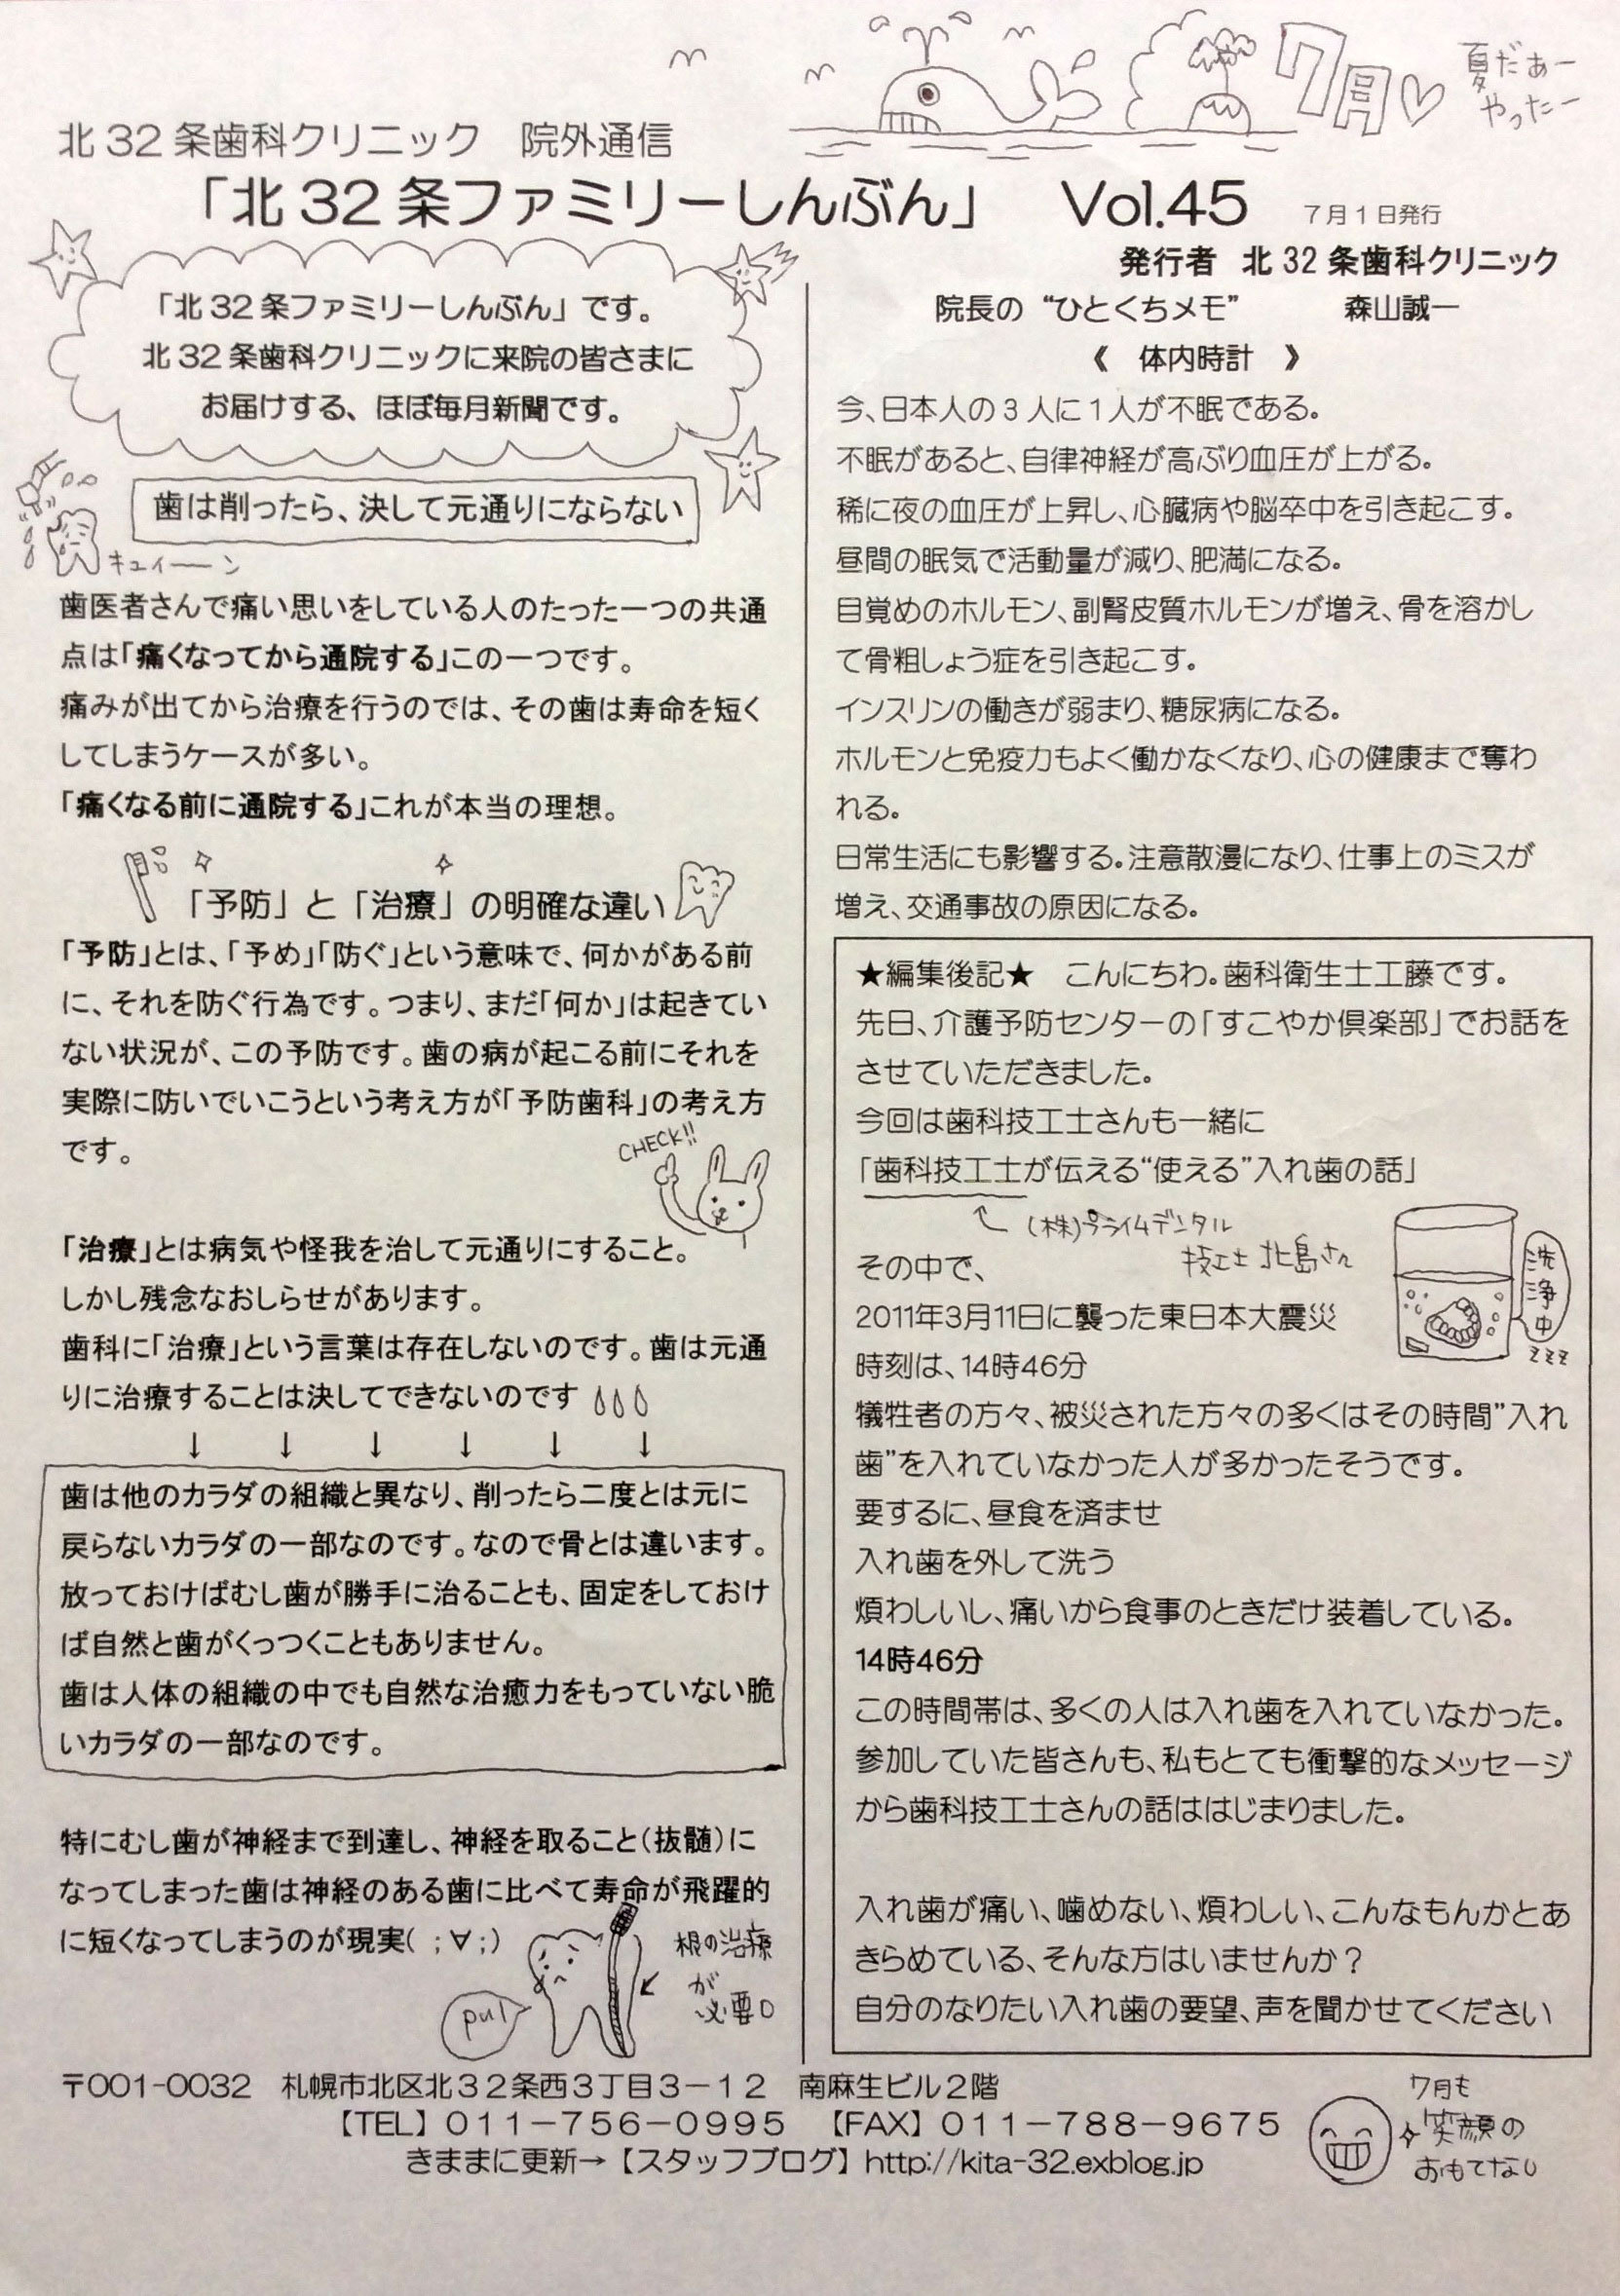 7月♡
夏だぁー
やったー
北32条歯科クリニック　院外通信
「北32条ファミリーしんぶん」　Vol.45　7月1日発行
発行者　北32条歯科クリニック
「北32条ファミリーしんぶん」です。
北32条歯科クリニックに来院の皆さまに
お届けする、ほぼ毎月新聞です。
歯は削ったら、決して元通りにならない
キュイーーン
歯医者さんで痛い思いをしている人のたった一つの共通
点は「痛くなってから通院する」この一つです。
痛みが出てから治療を行うのでは、その歯は寿命を短く
してしまうケースが多い。
「痛くなる前に通院する」これが本当の理想。
「予防」と「治療」の明確な違い
「予防」とは、「予め」「防ぐ」という意味で、何かがある前
に、それを防ぐ行為です。つまり、まだ「何か」は起きてい
ない状況が、この予防です。歯の病が起こる前にそれを
実際に防いでいこうという考え方が「予防歯科」の考え方
です。
CHECK!!
「治療」とは病気や怪我を治して元通りにすること。
しかし残念なおしらせがあります。
歯科に「治療」という言葉は存在しないのです。歯は元通
りに治療することは決してできないのです
↓　↓　↓　↓　↓　↓
歯は他のカラダの組織と異なり、削ったら二度とは元に
戻らないカラダの一部なのです。なので骨とは違います。
放っておけばむし歯が勝手に治ることも、固定をしておけ
ば自然と歯がくっつくこともありません。
歯は人体の組織の中でも自然な治癒力をもっていない脆
いカラダの一部なのです。
特にむし歯が神経まで到達し、神経を取ること（抜髄）に
なってしまった歯は神経のある歯に比べて寿命が飛躍的
に短くなってしまうのが現実( ;∀;)
根の治療
が
必要。
pul
院長の“ひとくちメモ”　森山誠一
《　体内時計　》
今、日本人の3人に1人が不眠である。
不眠があると、自律神経が高ぶり血圧が上がる。
稀に夜の血圧が上昇し、心臓病や脳卒中を引き起こす。
昼間の眠気で活動量が減り、肥満になる。
目覚めのホルモン、副腎皮質ホルモンが増え、骨を溶かし
て骨粗しょう症を引き起こす。
インスリンの働きが弱まり、糖尿病になる。
ホルモンと免疫力もよく働かなくなり、心の健康まで奪わ
れる。
日常生活にも影響する。注意散漫になり、仕事上のミスが
増え、交通事故の原因になる。
★編集後記★　こんにちわ。歯科衛生士工藤です。
先日、介護予防センターの「すこやか倶楽部」でお話を
させていただきました。
今回は歯科技工士さんも一緒に
「歯科技工士が伝える“使える”入れ歯の話」
(株)プライムデンタル
技工士 北島さん
その中で、
2011年3月11日に襲った東日本大震災
時刻は、14時46分
洗浄中
zzz
犠牲者の方々、被災された方々の多くはその時間”入れ
歯”を入れていなかった人が多かったそうです。
要するに、昼食を済ませ
入れ歯を外して洗う
煩わしいし、痛いから食事のときだけ装着している。
14時46分
この時間帯は、多くの人は入れ歯を入れていなかった。
参加していた皆さんも、私もとても衝撃的なメッセージ
から歯科技工士さんの話ははじまりました。
入れ歯が痛い、噛めない、煩わしい、こんなもんかとあ
きらめている、そんな方はいませんか？
自分のなりたい入れ歯の要望、声を聞かせてください
〒001-0032　札幌市北区北３２条西３丁目３－１２　南麻生ビル２階
【TEL】０１１－７５６－０９９５　【FAX】０１１－７８８－９６７５
きままに更新→【スタッフブログ】http://kita-32.exblog.jp
7月も
笑顔の
おもてなし